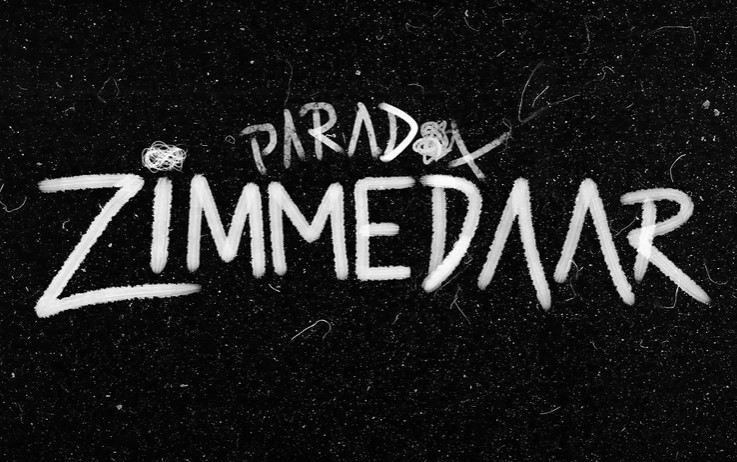 PARADOX
ZIMMEDAAR